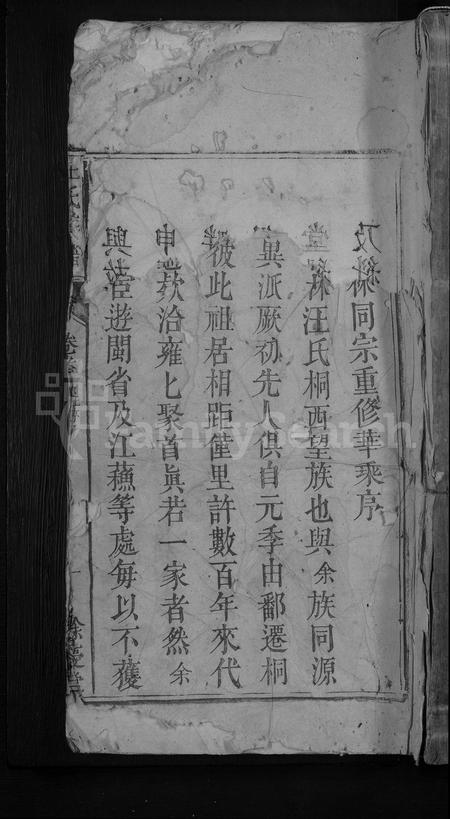 及綵同宗重修華乘序
綵汪氏桐西望族也與余族同源
異派厥初先人俱自元季由鄱遷桐
彼此祖居相距僅里許數百年來代
申款洽雍匕聚首眞若一家者然余
與宦遊閩省及江蘓等處每以不獲
氏宗譜
卷
FamilySearch